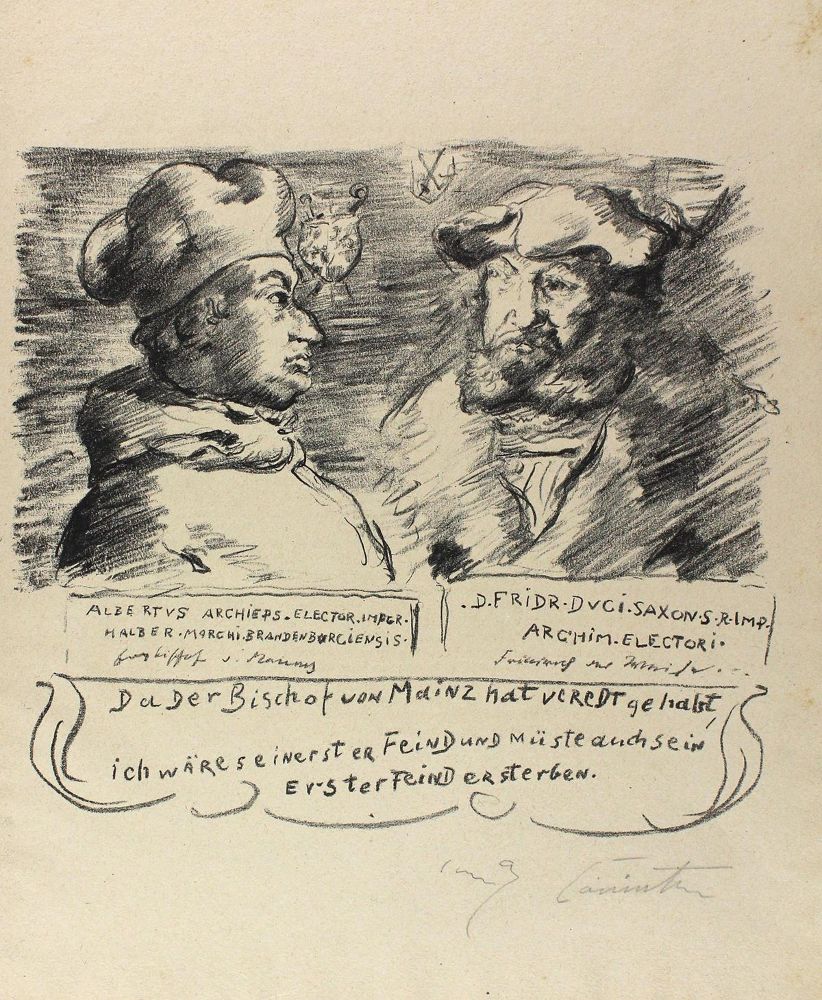 ALBERTVS ARCHIEPS. ELECTOR. IMPER.
HALBER. MARCHI. BRANDENBURGIENSIS.
. D. FRIDR. DVCI. SAXON. S. R. IMP.
ARCHIM. ELECTORI.
Da Der Bischof von Mainz hat veredt gehabt,
ich wäre sein erster Feind und müste auch sein
Erster Feind ersterben.
Lovis Corinth